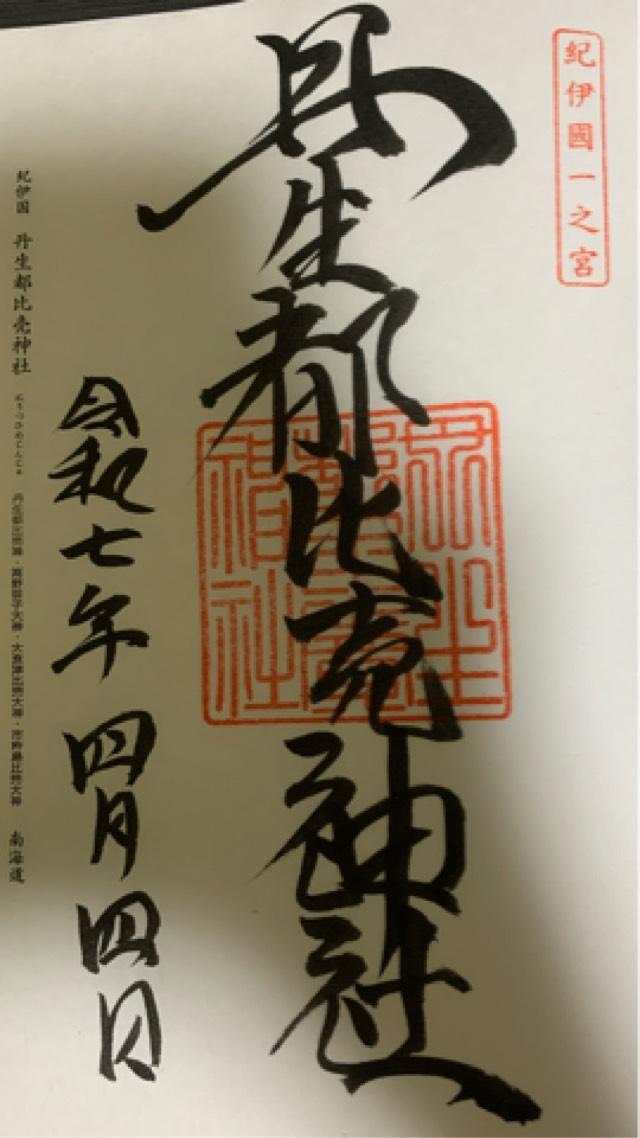 紀伊國一之宮
丹生都比売神社
令和七年四月四日
紀伊国 丹生都比売神社 にうつひめじんじゃ 丹生都比売大神・高野御子大神・大食津比売大神・市杵島比売大神 南海道